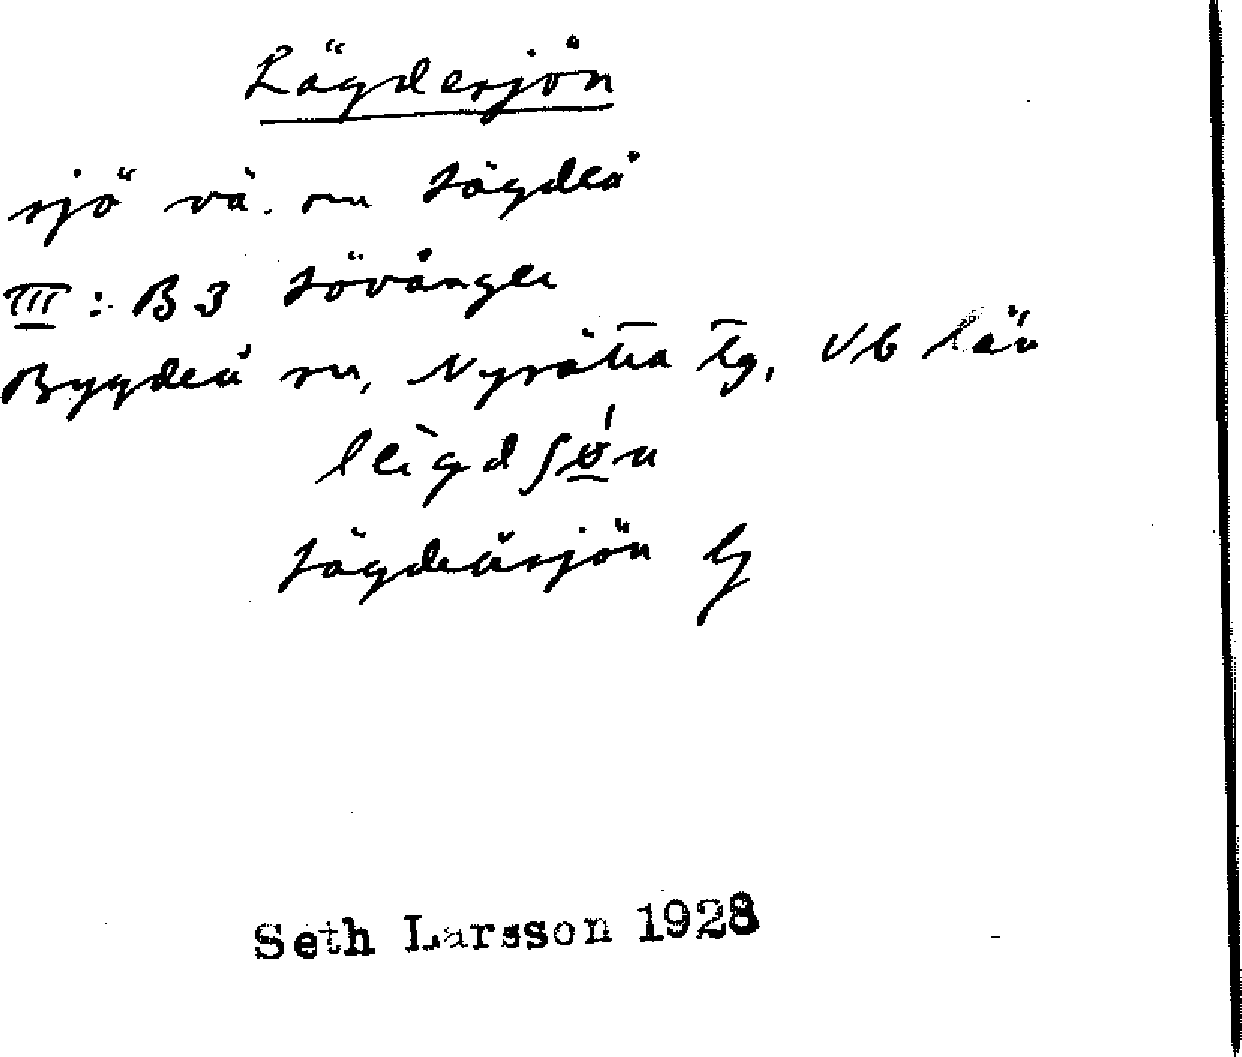 Lägdesjön
sjö vä. om Lägdeå
III: B3 Lövånger
Bygdeå sn, Nysätra tg, Vb län
Lägdeåsjön
Seth Larsson 1928